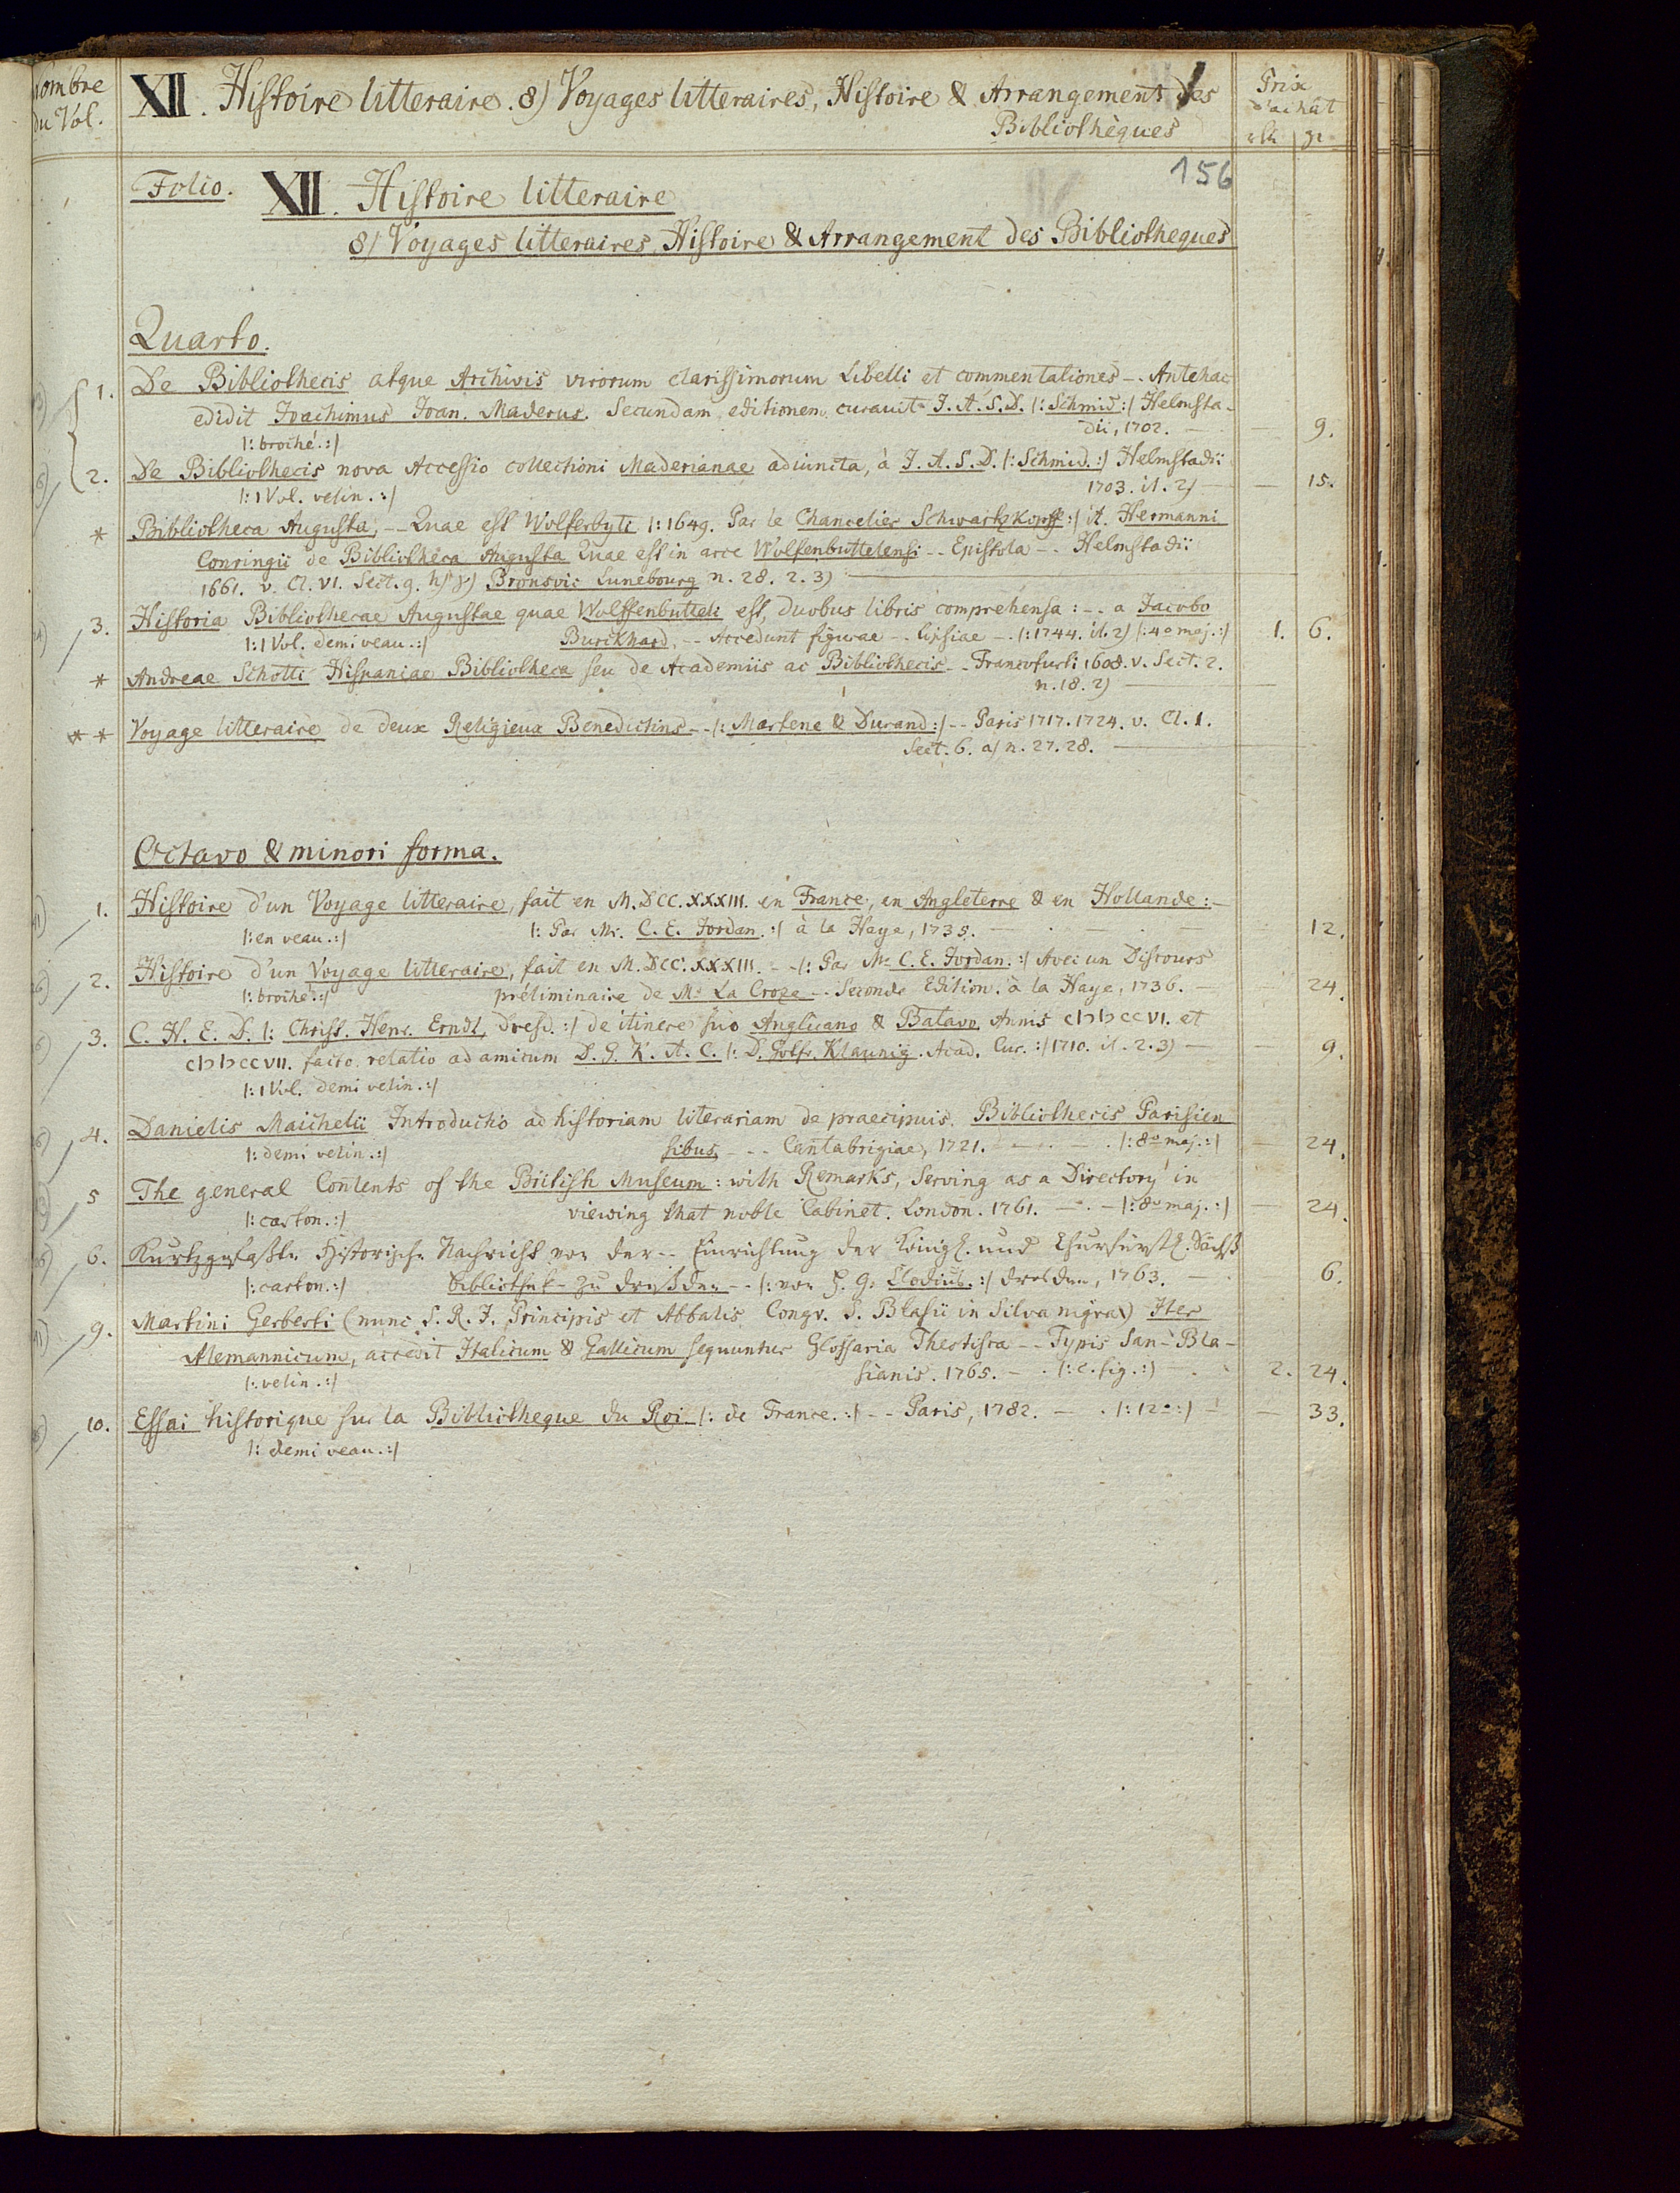 Nombre
du Vol.
XII. Histoire litteraire. 8) Voyages litteraires, Histoire & Arrangement des
Bibliothèques
Prix
d'achât
rth gr
156
Folio. XII. Histoire litteraire
8) Voyages litteraires, Histoire & Arrangement des Bibliotheques
Quarto.
1. De Bibliothecis atque Archivis virorum clarissimorum Libelli et commentationes -. Antehac
edidit Joachimus Joan. Maderus. Secundam editionem curavit J. A. S. D. |: Schmid :| Helmsta-
dii, 1702. — — 9.
|: broché. :|
2. De Bibliothecis nova Accessio collectioni Maderianae adiuncta, à J. A. S. D. |: Schmid. :| Helmstadii
|: 1 Vol. velin. :| 1703. it. 2) — — 15.
* Bibliotheca Augusta, -- Quae est Wolferbyti |: 1649. Par le Chancelier Schwartzkopff :| it. Hermanni
Conringii de Bibliotheca Augusta Quae est in arce Wolfenbuttelensi -- Epistola -. Helmstadii
1661. v. Cl. VI. Sect. 9. h) γ) Bronsvic Lunebourg n. 28. 2. 3) —
3. Historia Bibliothecae Augustae quae Wolffenbutteli est, duobus libris comprehensa : -. a Jacobo
|: 1 Vol. demi veau. :| Burckhard, -- Accedunt figurae -- Lipsiae -. |: 1744. it. 2) |: 4o maj. :| 1. 6.
* Andreae Schotti Hispaniae Bibliotheca seu de Academiis ac Bibliothecis -- Francofurti 1608. v. Sect. 2.
n. 18. 2) —
** Voyage litteraire de deux Religieux Benedictins -- |: Martene & Durand :| -- Paris 1717. 1724. v. Cl. 1.
Sect. 6. a) n. 27. 28. —
Octavo & minori forma.
1. Histoire d'un Voyage litteraire, fait en M.DCC.XXXIII. en France, en Angleterre & en Hollande: -
|: en veau. :| |: Par Mr. C. E. Jordan. :| à la Haye, 1735. — 12.
2. Histoire d'un Voyage litteraire, fait en M.DCC.XXXIII. - - |: Par Mr C. E. Jordan. :| Avec un Discours
|: broché. :| préliminaire de Mr La Croze -- Seconde Edition. à la Haye, 1736. — 24.
3. C. H. E. D. |: Christ. Henr. Erndl, Dresd. :| de itinere suo Anglicano & Batavo, Annis cIↃ IↃ ccVI. et
cIↃ IↃ ccVII. facto relatio ad amicum D. G. K. A. C. |: D. Gotfr. Klaunig. Acad. Cur. :| 1710. it. 2. 3) — — 9.
|: 1 Vol. demi velin. :|
4. Danielis Maichelii Introductio ad historiam literariam de praecipuis Bibliothecis Parisien
|: demi velin. :| sibus, - -. Cantabrigiae, 1721. — . |: 8o maj. :| — 24.
5 The general Contents of the British Museum: with Remarks, Serving as a Directory in
|: carton. :| viewing that noble Cabinet. London. 1761. —. — |: 8o maj. :| — 24.
6. Kurtzgefaßte Historische Nachricht von der -- Einrichtung der Königl. und Churfürstl. Sächß
|: carton. :| Bibliothek - zu Dreßden -- |: von H. G. Clodius. :| Dresden, 1763. 6.
9. Martini Gerberti (nunc S. R. J. Principis et Abbatis Congr. S. Blasii in Silva nigra) Iter
Alemannicum, accedit Italicum & Gallicum sequuntur Glossaria Theotisca -- Typis San-Bla-
|: velin. :| sianis. 1765. — . |: c. fig. :| — . 2. 24.
10. Essai historique sur la Bibliotheque du Roi |: de France. :| -- Paris, 1782. — . |: 12o :| — — 33.
|: demi veau. :|